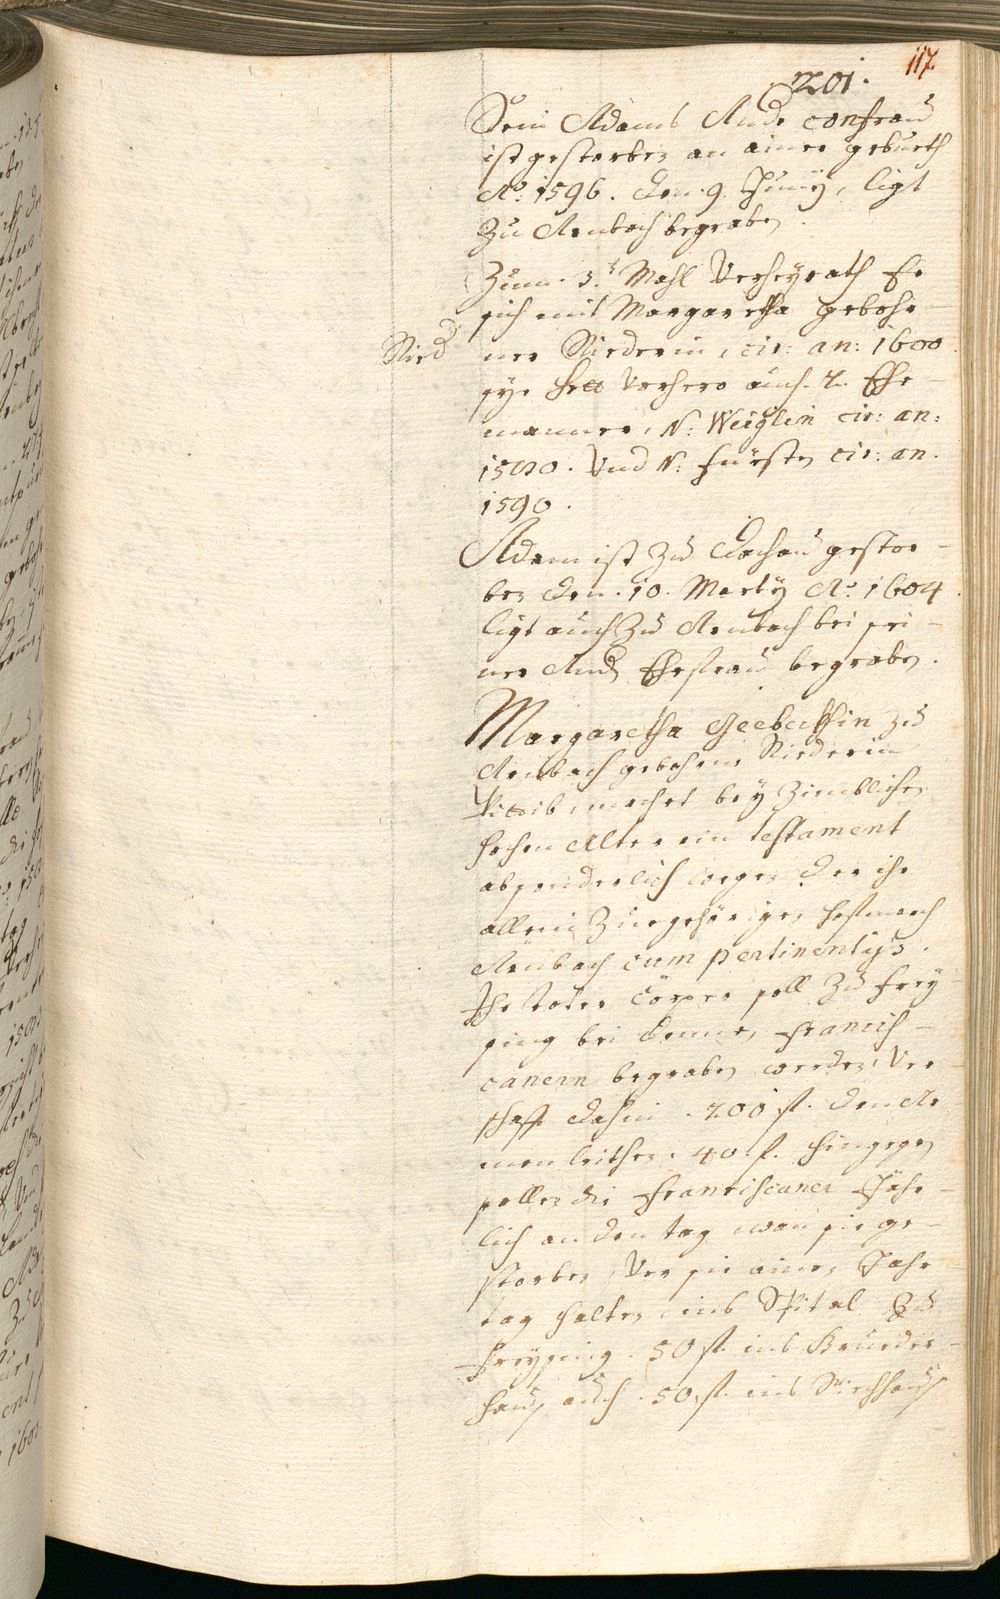 117.
201.
Sein Adams Ande confrau
ist gestorben an ainer geburth
Aō. 1596. den. 9. Junÿ, ligt
Zu Arnbach begraben.
Zum. 3.t Mahl Verheÿrath Er
sich mit Margaretha gebohr-
Ried
ner Riederin, cir: an: 1600.
sÿe hett Vorhero auch. 2. Ehe-
männer, N: Weiglin cir: an:
1580. Vnd N: fürsten cir: an.
1590.
Adam ist zu Dachau gestor-
ben den. 10. Martÿ Aō. 1604.
ligt auch Zu Arnbach bei sei-
ner And Ehefrau begraben.
Margaretha zu
Arnbach gebohrne Riederin
Wittib, machet beÿ Zimblichen
hochen Alter ein testament
absonderlich wegen der ihr
allein Zuegehörigen hofmarch
Arnbach cum pertinentÿs.
Ihr toter Cörper soll Zu freÿ-
sing bei denen, Francis-
canern begraben werden, Ver-
schafft dahin. 200 fl. den Ar-
men leithen. 40 f. hingegen
sollen die Franciscaner Jähr-
lich an den tag, wan sie ge-
storben, Vor sie ainen Jahr-
tag halten, ins Spital Zu
freÿsing. 50 fl. ins Brueder-
haus, auch. 50. fl. ins Siechhaus,